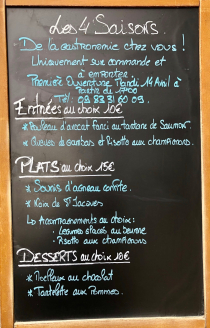 Les 4 Saisons.
De la Gastronomie chez vous !
Uniquement sur commande et
à emporter.
Première Ouverture Mardi 14 Avril à
Partir de 17h00
Tél: 03 83 31 60 09.
Entrées au choix 10€
* d'avocat Farci au tartare de Saumon.
* de Gambas et Risotto aux champignons.
PLATS au choix 15€
* Souris d'agneau confite.
* Noix de St Jacques
↳ Accompagnements au choix:
- Légumes glacés au beurre
- Risotto aux champignons
DESSERTS au choix 10€
* Moelleux au chocolat
* Tartelette aux Pommes.